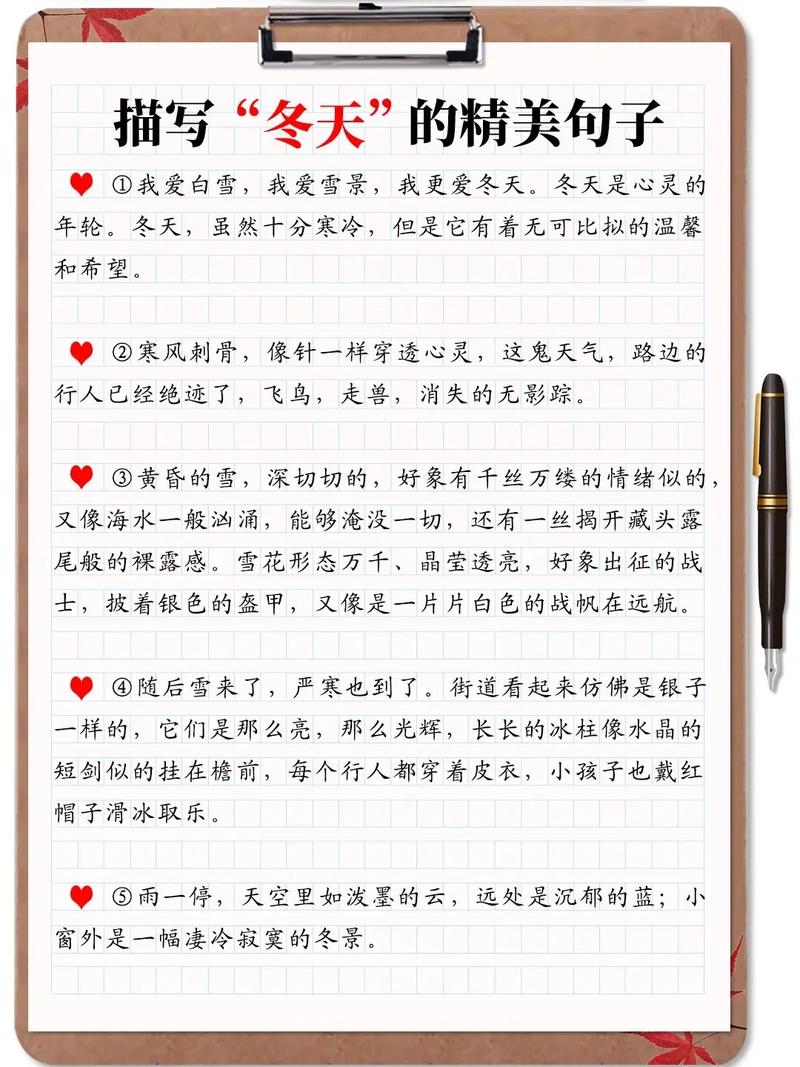 描写“冬天”的精美句子
①我爱白雪，我爱雪景，我更爱冬天。冬天是心灵的
年轮。冬天，虽然十分寒冷，但是它有着无可比拟的温馨
和希望。
②寒风刺骨，像针一样穿透心灵，这鬼天气，路边的
行人已经绝迹了，飞鸟，走兽，消失的无影踪。
③黄昏的雪，深切切的，好象有千丝万缕的情绪似的，
又像海水一般汹涌，能够淹没一切，还有一丝揭开藏头露
尾般的裸露感。雪花形态万千、晶莹透亮，好象出征的战
士，披着银色的盔甲，又像是一片片白色的战帆在远航。
④随后雪来了，严寒也到了。街道看起来仿佛是银子
一样的，它们是那么亮，那么光辉，长长的冰柱像水晶的
短剑似的挂在檐前，每个行人都穿着皮衣，小孩子也戴红
帽子滑冰取乐。
⑤雨一停，天空里如泼墨的云，远处是沉郁的蓝；小
窗外是一幅凄冷寂寞的冬景。